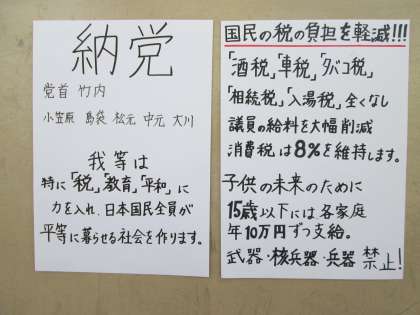 納党
党首 竹内
小笠原 島袋 松元 中元 大川
我等は
特に「税」「教育」「平和」に
力を入れ、日本国民全員が
平等に暮らせる社会を作ります。
国民の税の負担を軽減!!!
「酒税」「車税」「タバコ税」
「相続税」「入湯税」全くなし
議員の給料を大幅削減
消費税は8%を維持します。
子供の未来のために
15歳以下には各家庭
年10万円ずつ支給。
武器・核兵器・兵器 禁止!